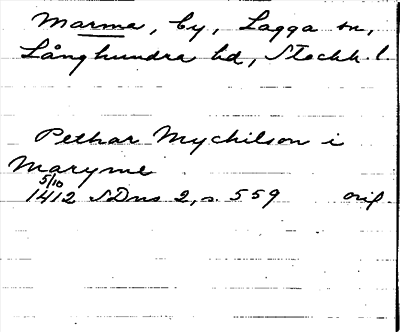 Marma, by, Lagga sn,
Långhundra hd, Stockh. l.
Pethar Mychilson i
Maryme
5/10
1412 SDns 2, s. 559 orig.